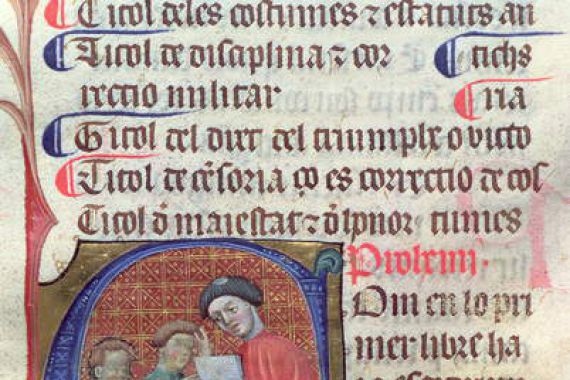 Titol deles costumes ⁊ estatuts an
Titol de disciplina ⁊ cor tichs
rectio militar ria
Titol del dret del triumphe o victo
Titol de cēsoria ço es correctio de cos
Titol d̄ maiestat ⁊ d̄ honor tumes
Prolemj.
Om en lo pri
mer libre ha